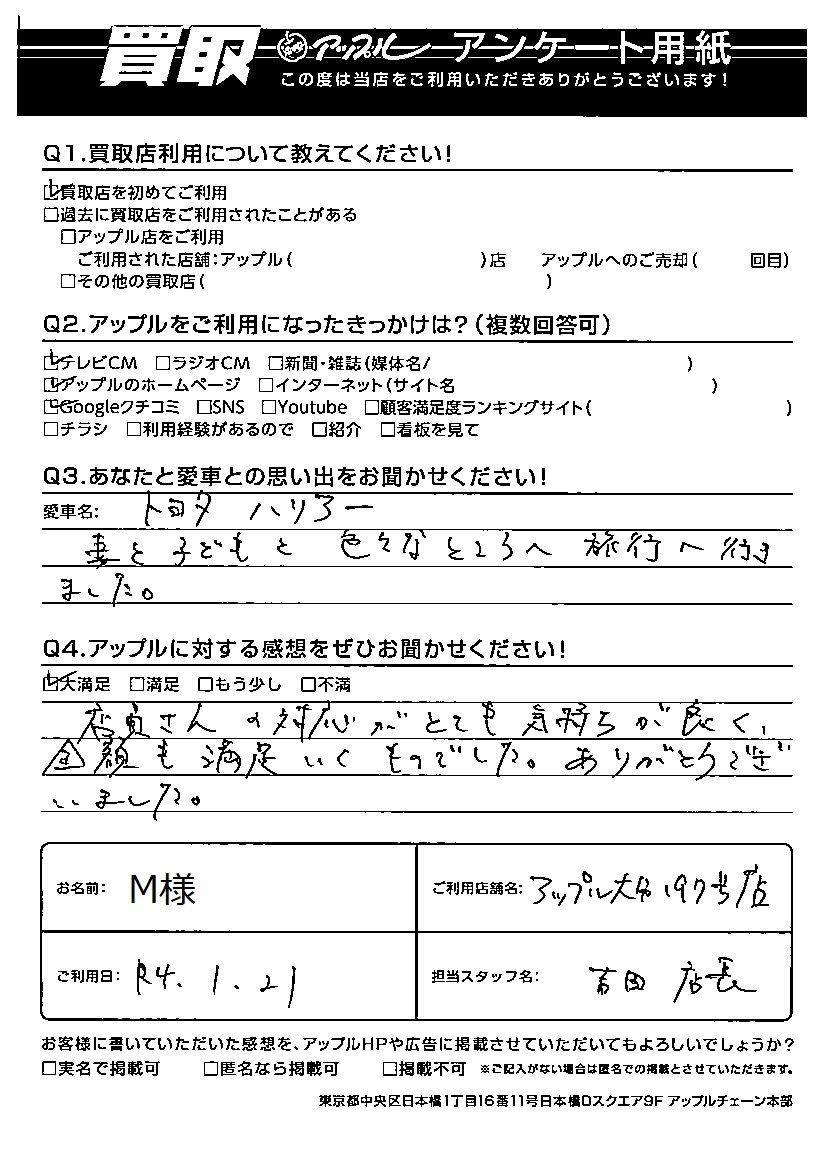 買取 アップル アンケート用紙
この度は当店をご利用いただきありがとうございます！
Q1.買取店利用について教えてください！
☑買取店を初めてご利用
□過去に買取店をご利用されたことがある
□アップル店をご利用
ご利用された店舗：アップル（　）店　アップルへのご売却（　回目）
□その他の買取店（　）
Q2.アップルをご利用になったきっかけは？（複数回答可）
☑テレビCM □ラジオCM □新聞・雑誌（媒体名/　）
☑アップルのホームページ □インターネット（サイト名　）
☑Googleクチコミ □SNS □Youtube □顧客満足度ランキングサイト（　）
□チラシ □利用経験があるので □紹介 □看板を見て
Q3.あなたと愛車との思い出をお聞かせください！
愛車名：トヨタ ハリアー
妻と子どもと 色々なところへ 旅行へ行き
ました。
Q4.アップルに対する感想をぜひお聞かせください！
☑大満足 □満足 □もう少し □不満
店員さんの対応がとても気持ちが良く、
金額も満足いくものでした。ありがとうござ
いました。
お名前：M様
ご利用店舗名：アップル大分197号店
ご利用日：R4.1.21
担当スタッフ名：吉田 店長
お客様に書いていただいた感想を、アップルHPや広告に掲載させていただいてもよろしいでしょうか？
□実名で掲載可 □匿名なら掲載可 □掲載不可 ※ご記入がない場合は匿名での掲載とさせていただきます。
東京都中央区日本橋1丁目16番11号日本橋Dスクエア9F アップルチェーン本部